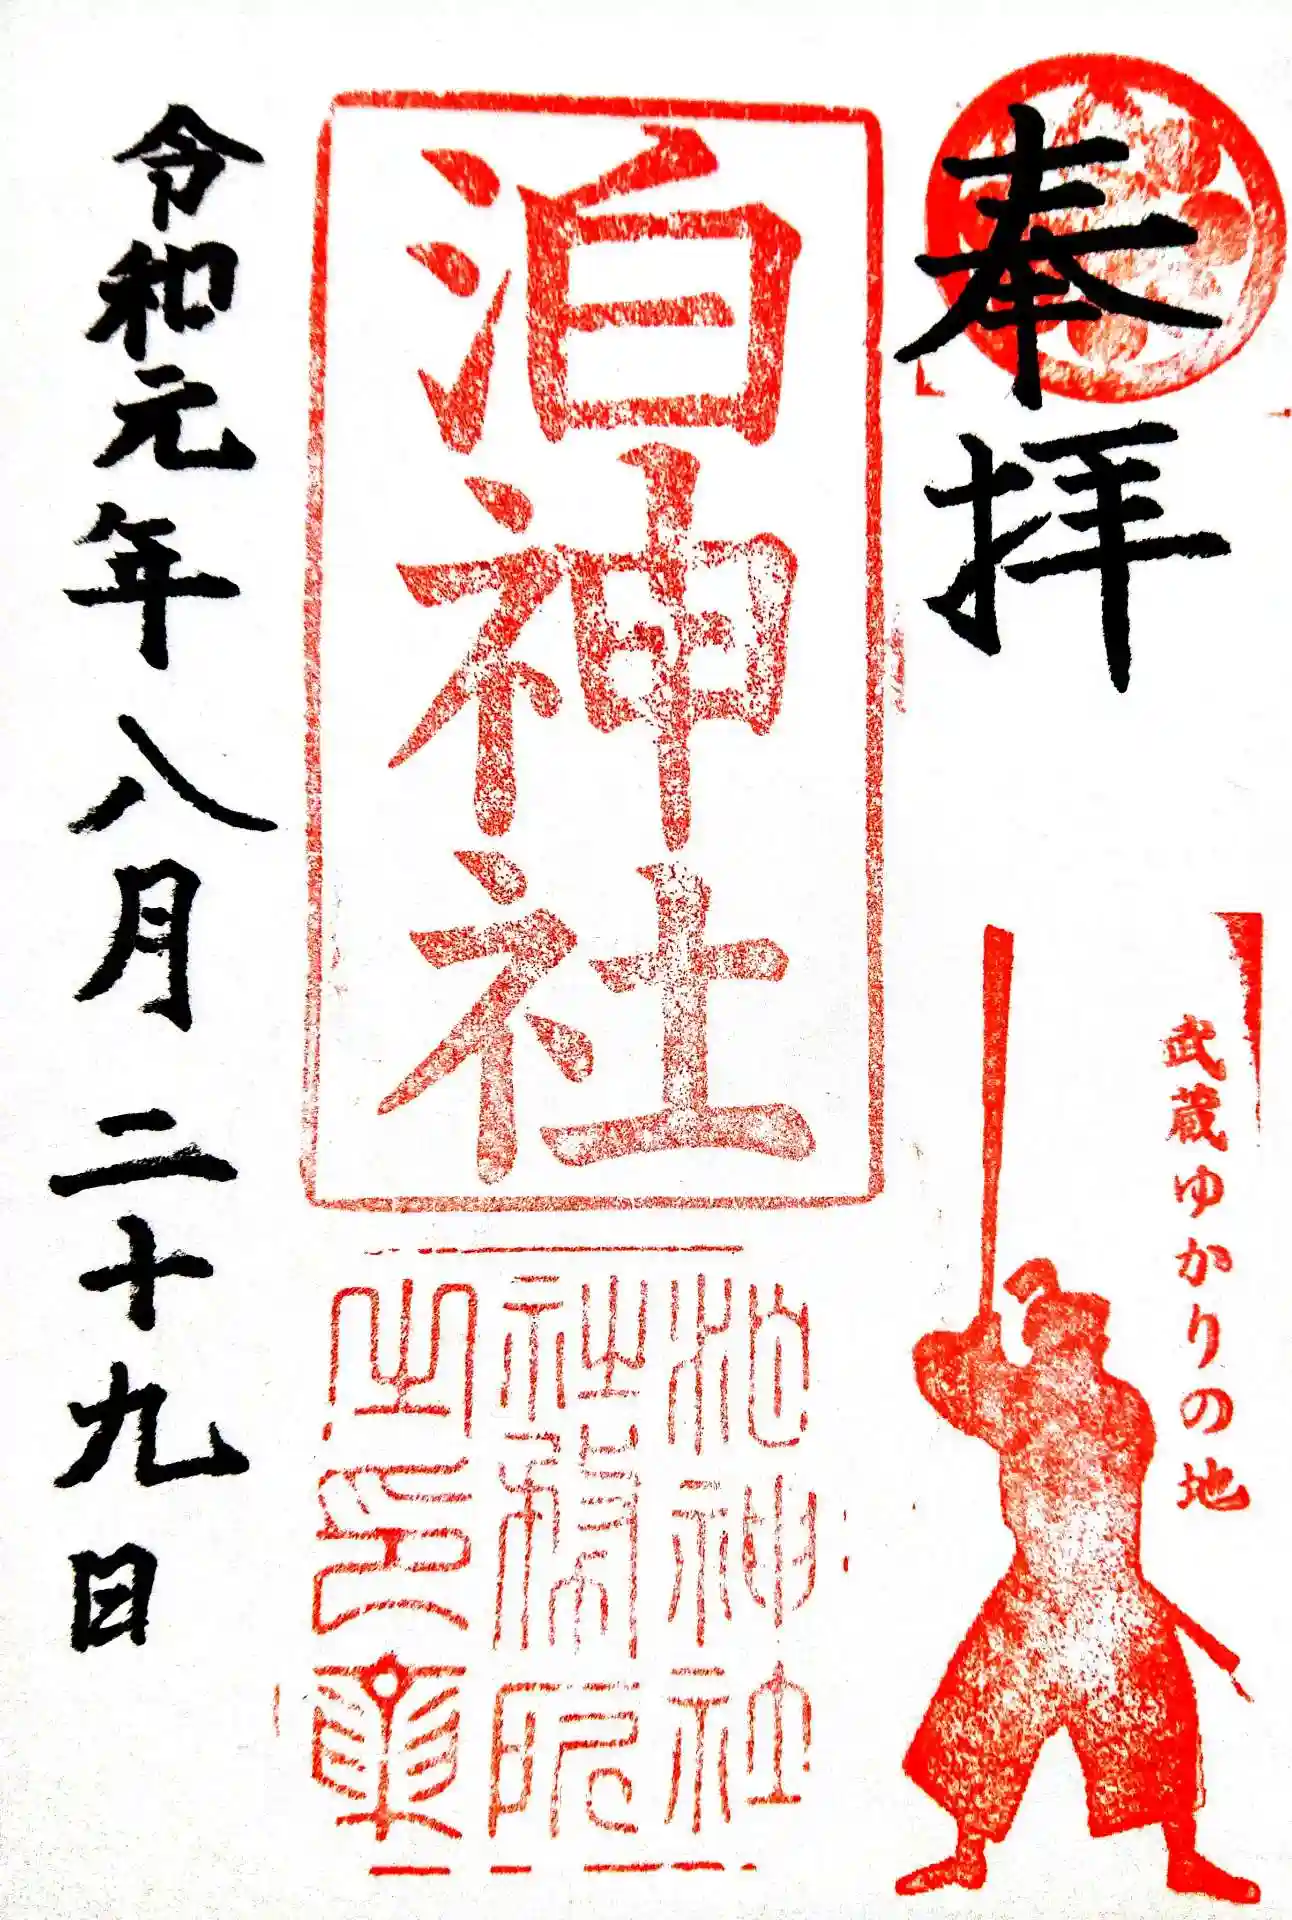 奉拝
武蔵ゆかりの地
泊神社
泊神社
社務所
之印
令和元年八月二十九日